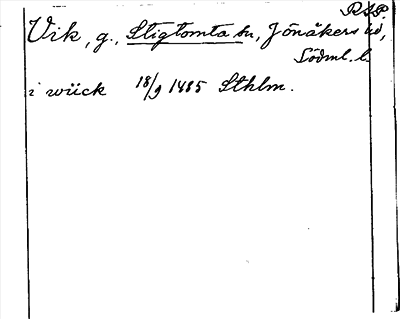 R A P.
Vik, g., Stigtomta sn, Jönåkers hd,
Södml. l.
i wiick 18/9 1485 Sthlm.